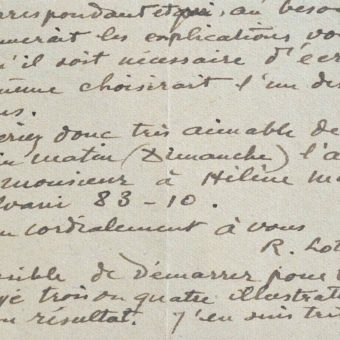 respondant et qui, au beso
nerait les explications vo
u'il soit nécessaire d'écr
ême choisirait l'un des
s.
eriez donc très aimable de
matin (Dimanche) l'a
monsieur à Hélène M
lvani 83-10.
cordialement à vous
R. Lot
sible de démarrer pour
yé trois ou quatre illustrat
on résultat. J'en suis tris